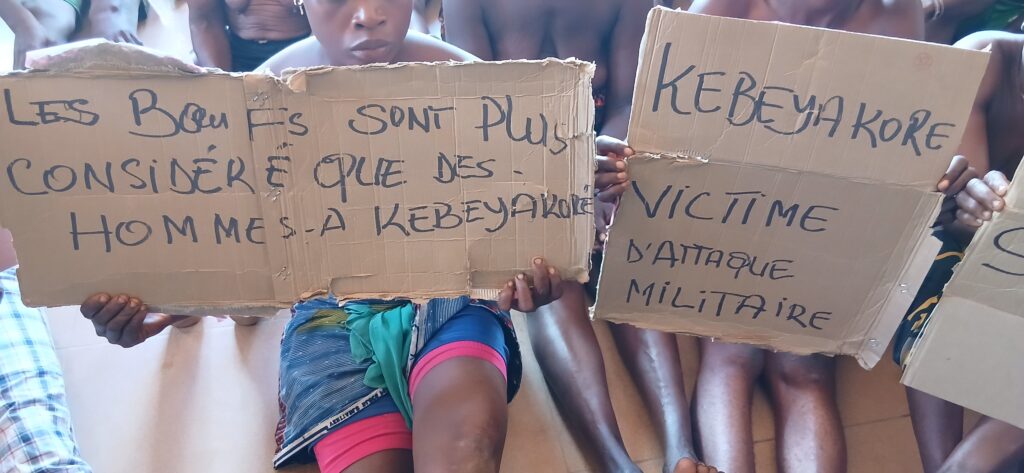 LES BŒUFS SONT PLUS
CONSIDÉRÉ QUE DES-
HOMMES-A KEBEYAKORÉ
KEBEYAKORE
VICTIME
D'ATTAQUE
MILITAIRE
S